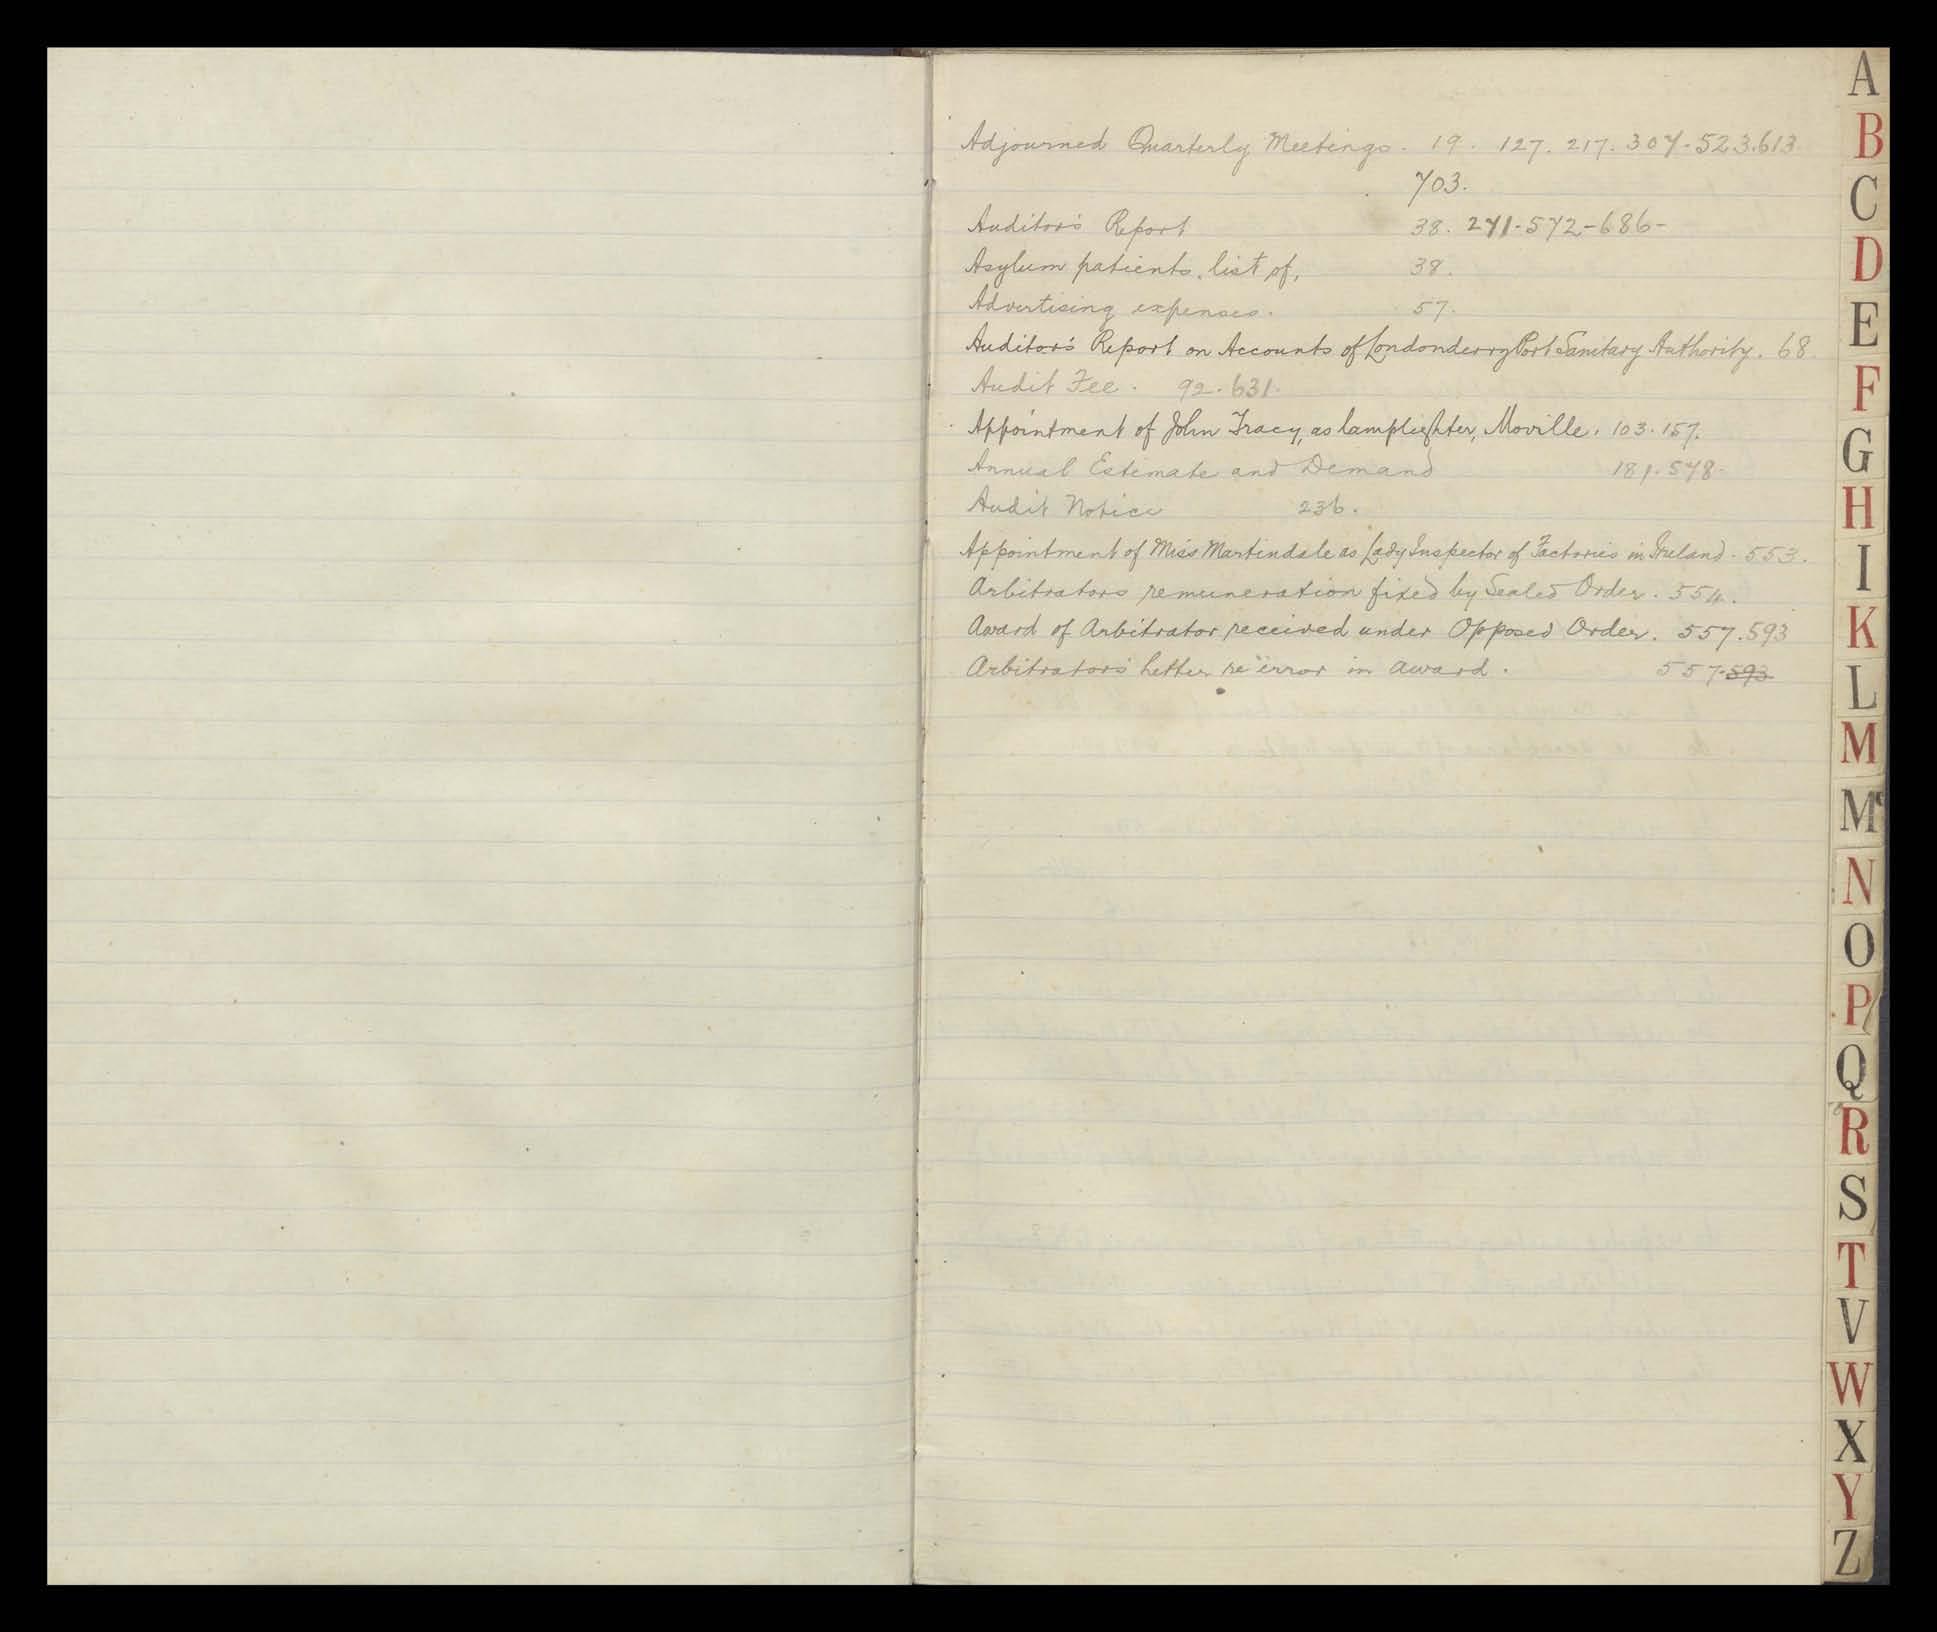 Adjourned Quarterly Meetings. 19. 127. 217. 307-523.613
703.
Auditor's Report 38. 271-572-686-
Asylum patients, list of, 38.
Advertising expenses. 57.
Auditor's Report on Accounts of Londonderry Port Sanitary Authority. 68.
Audit Fee. 92.631.
Appointment of John Tracy, as lamplighter, Moville. 103.157.
Annual Estimate and Demand 181.578-
Audit Notice 236.
Appointment of Miss Martindale as Lady Inspector of Factories in Ireland. 553.
Arbitrators remuneration fixed by Sealed Order. 554.
Award of Arbitrator received under Opposed Order. 557.593
Arbitrators' Letter re error in award. 557-593
A
B
C
D
E
F
G
H
I
K
L
M
Mc
N
O
P
Q
R
S
T
V
W
X
Y
Z